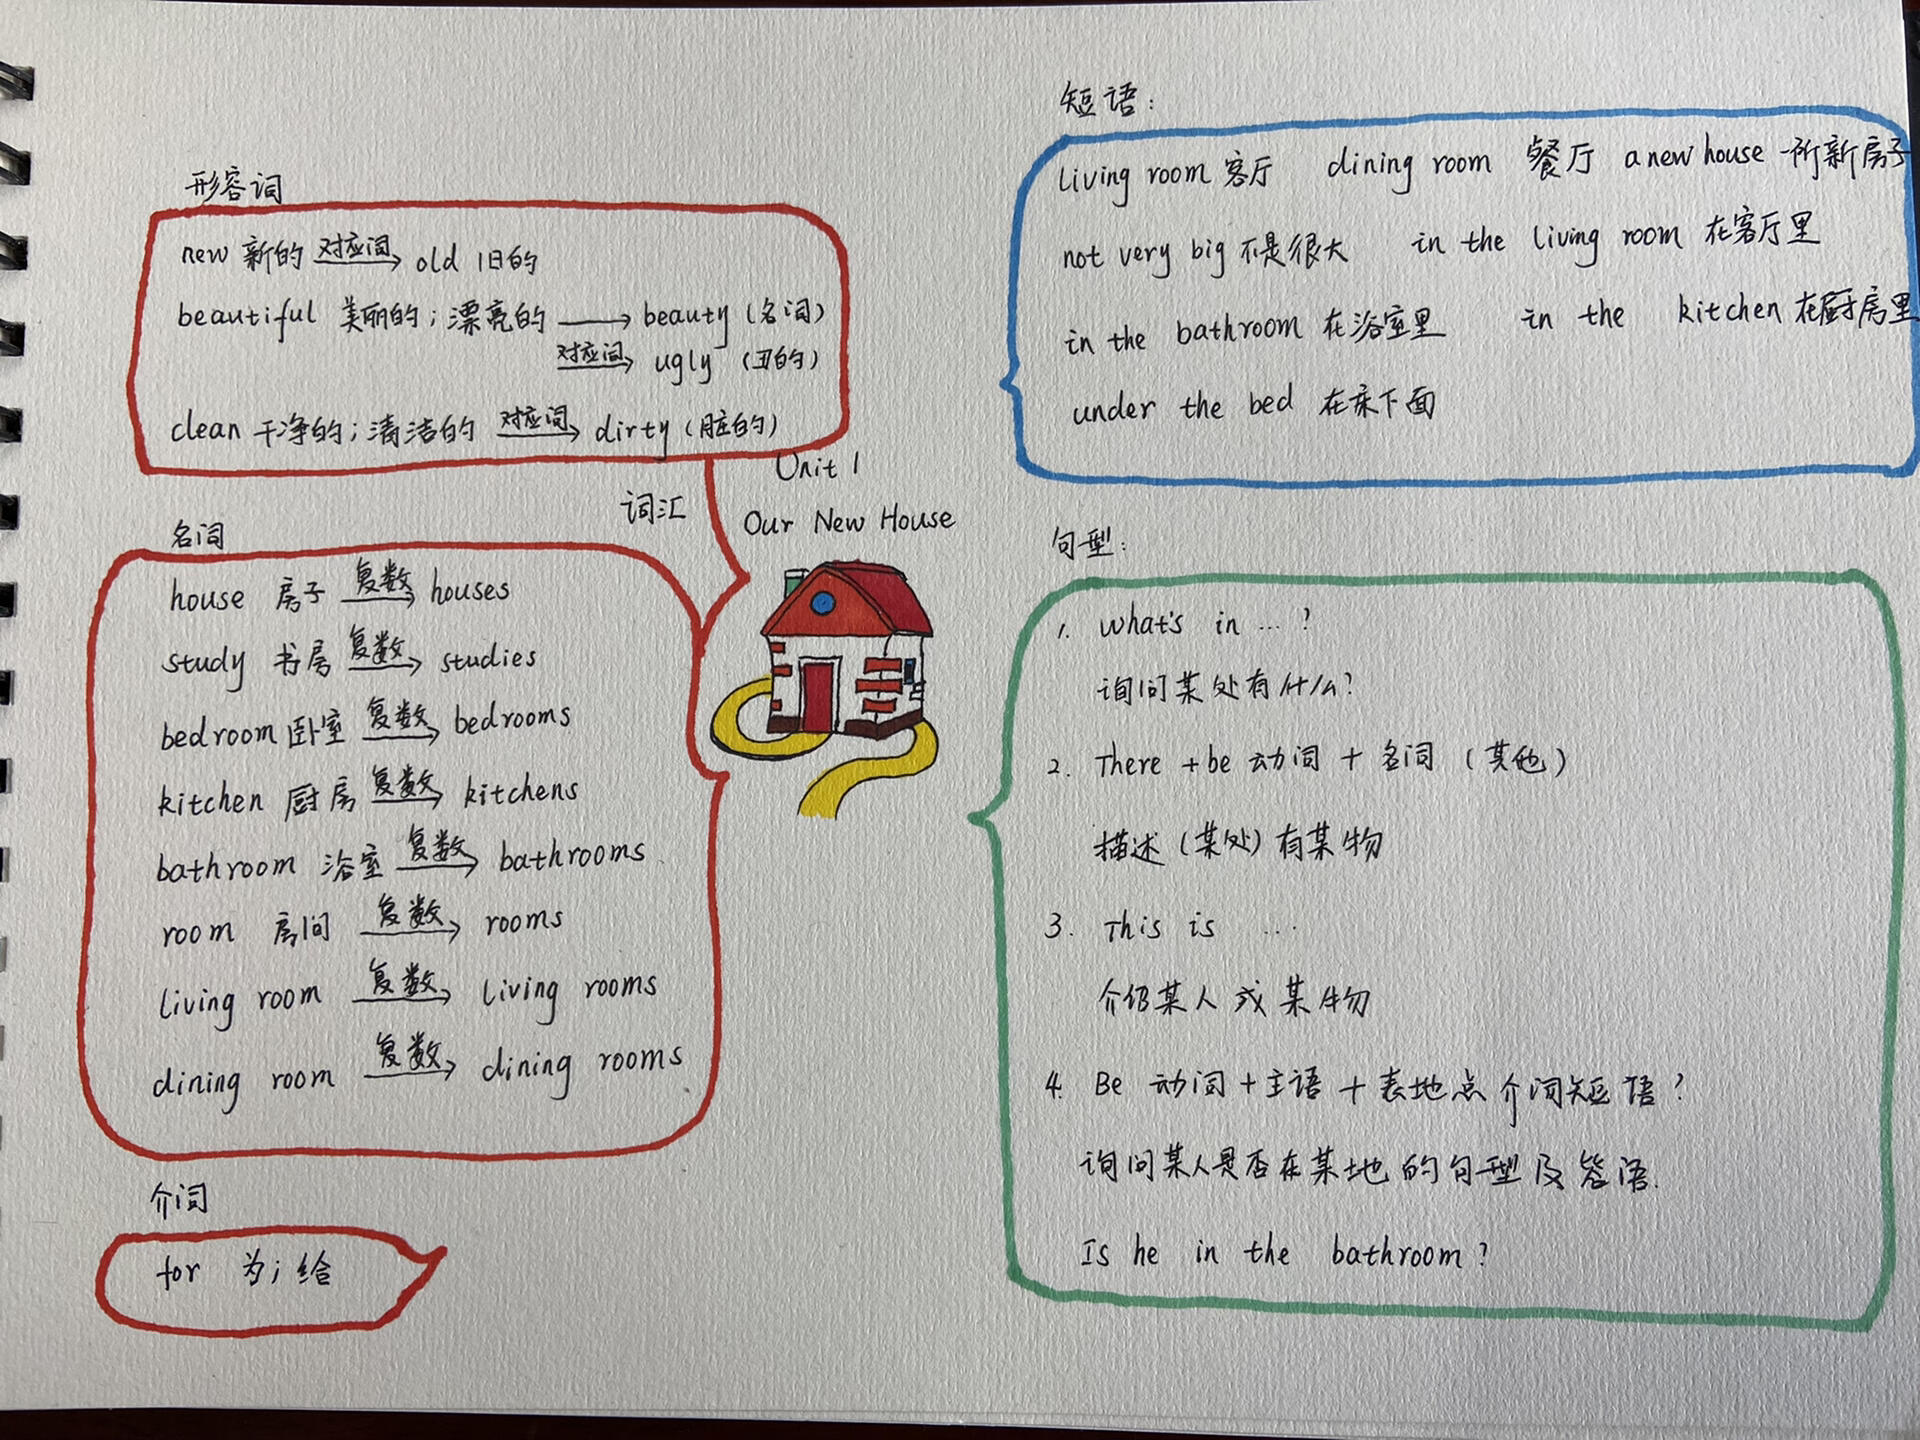 形容词
new 新的 对应词 old 旧的
beautiful 美丽的；漂亮的 → beauty (名词)
对应词 ugly (丑的)
clean 干净的；清洁的 对应词 dirty (脏的)
词汇
Unit 1
Our New House
名词
house 房子 复数 houses
study 书房 复数 studies
bedroom 卧室 复数 bedrooms
kitchen 厨房 复数 kitchens
bathroom 浴室 复数 bathrooms
room 房间 复数 rooms
living room 复数 living rooms
dining room 复数 dining rooms
介词
for 为；给
短语：
living room 客厅 dining room 餐厅 a new house 一所新房子
not very big 不是很大 in the living room 在客厅里
in the bathroom 在浴室里 in the kitchen 在厨房里
under the bed 在床下面
句型：
1. What's in ... ?
询问某处有什么？
2. There + be 动词 + 名词 (其他)
描述 (某处) 有某物
3. This is ...
介绍某人或某物
4. Be 动词 + 主语 + 表地点介词短语？
询问某人是否在某地的句型及答语.
Is he in the bathroom ?